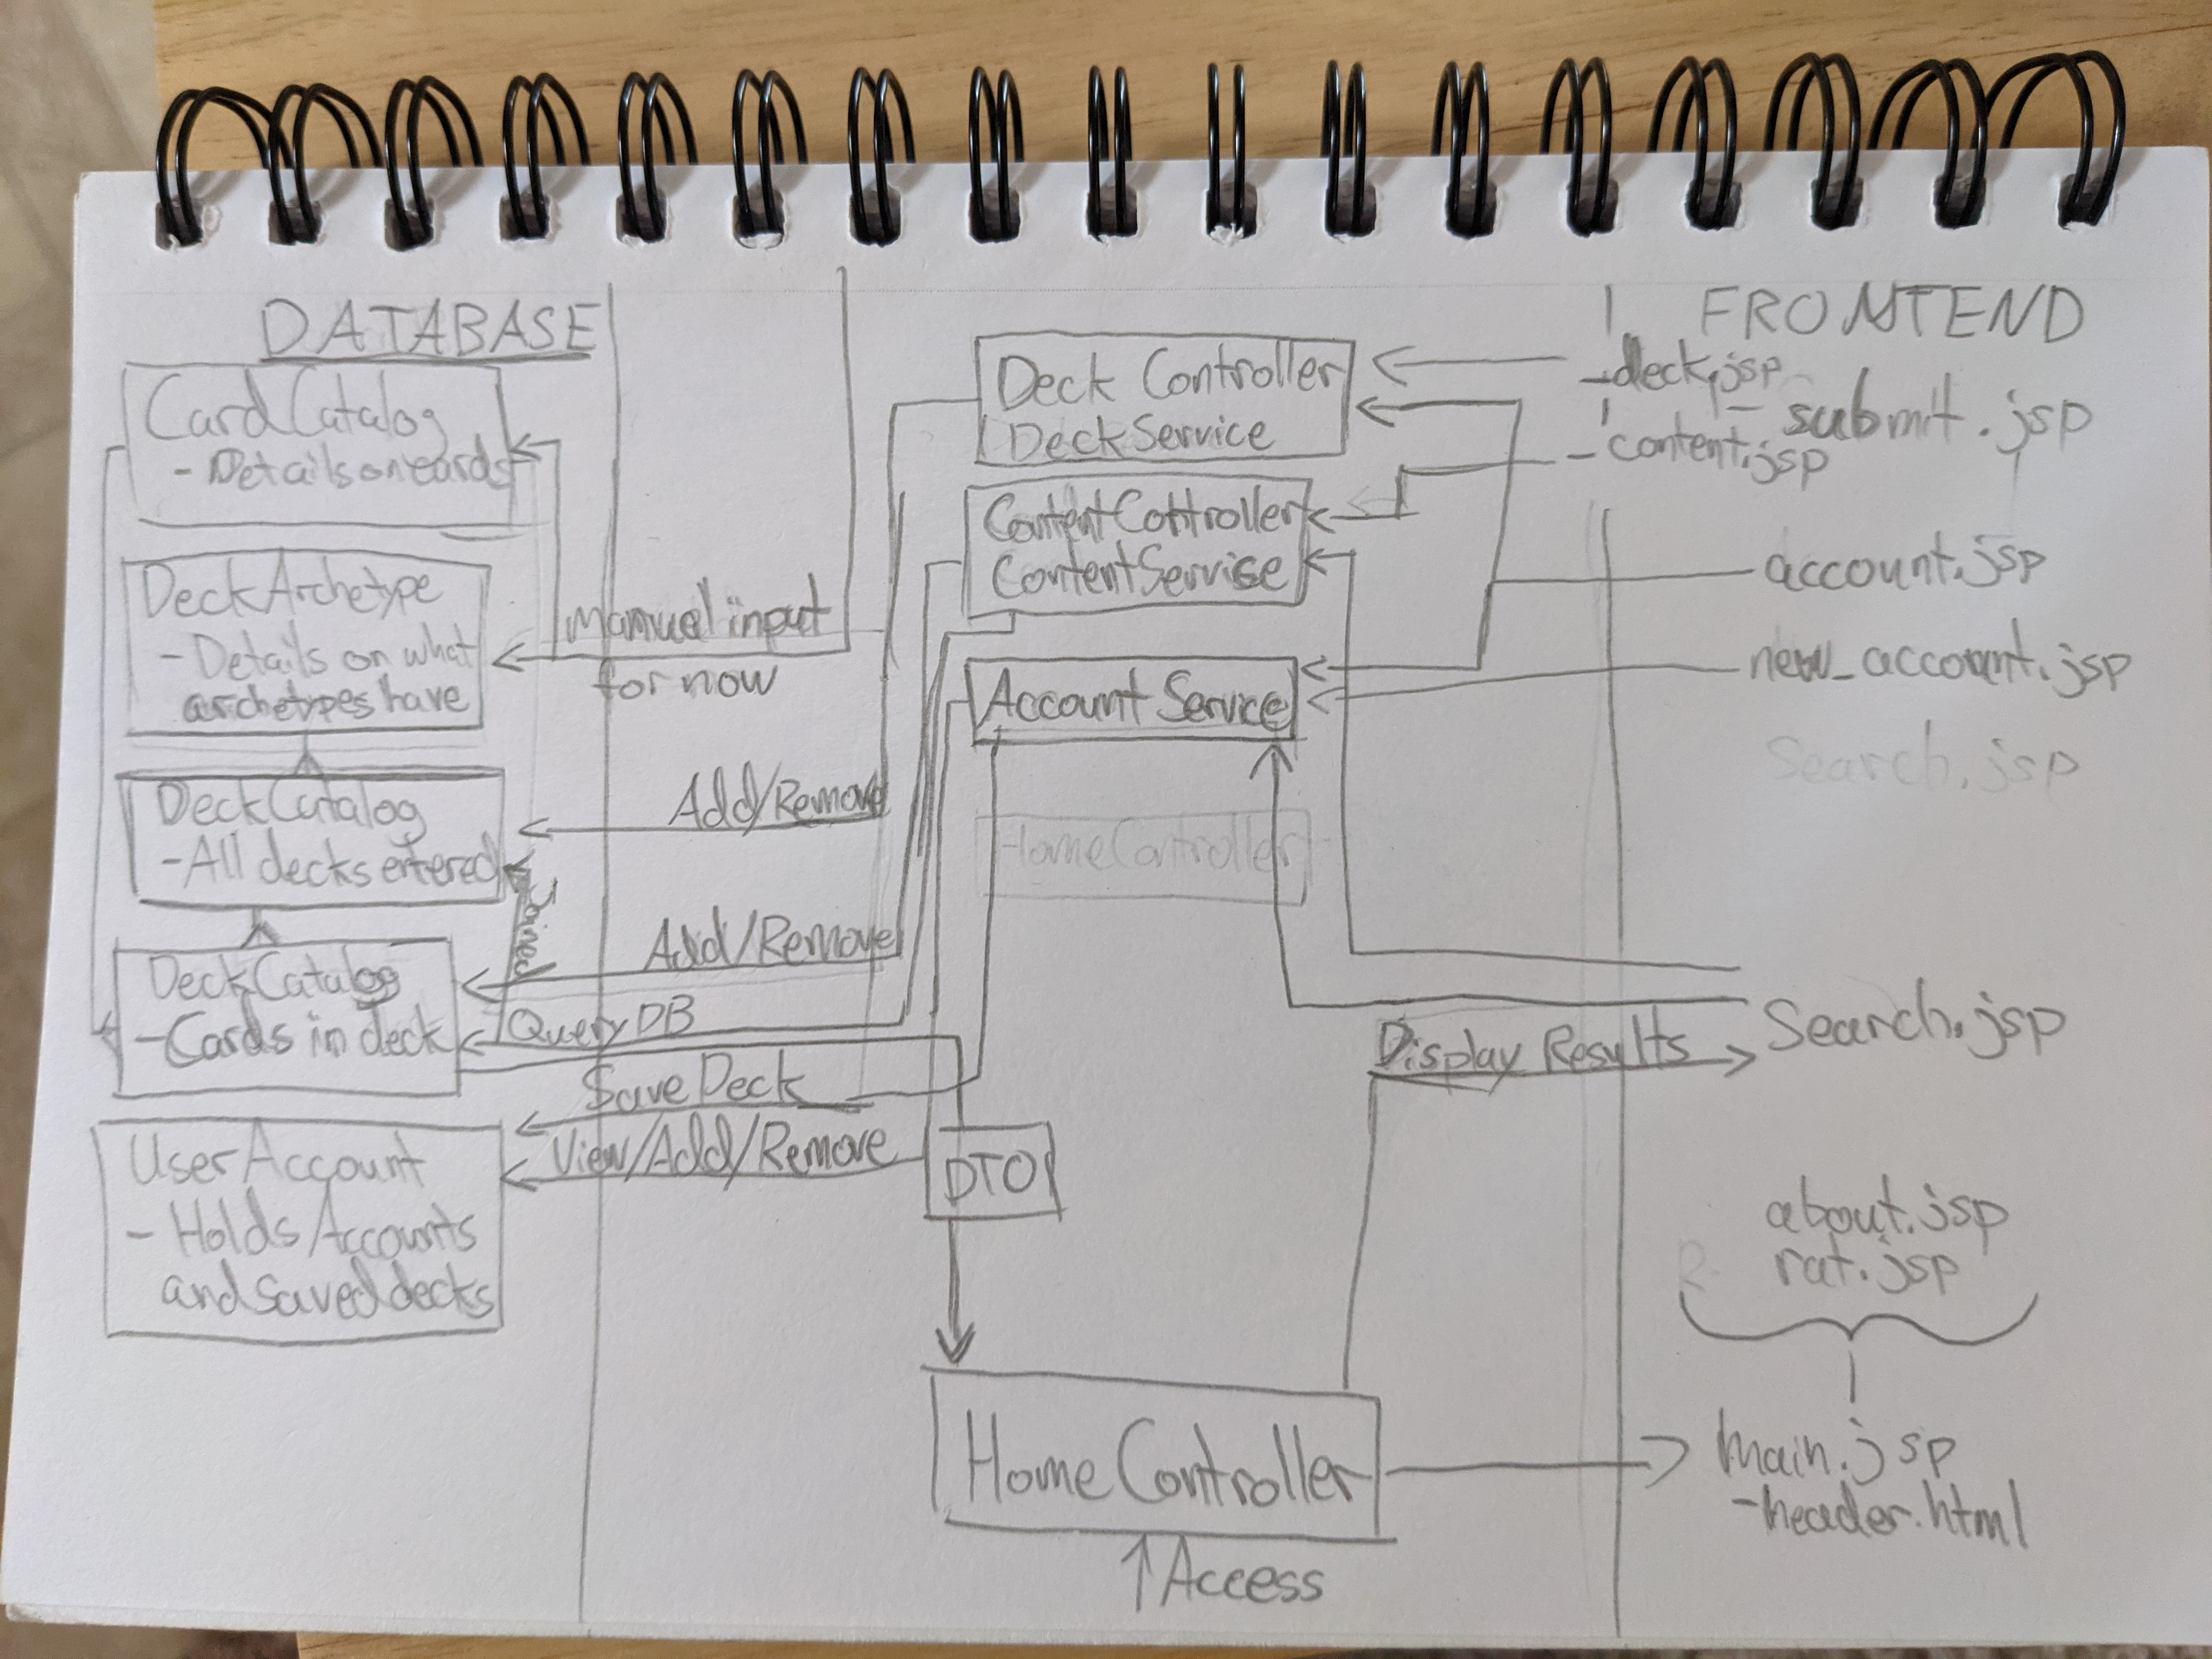 DATABASE
CardCatalog
- Details on cards
DeckArchetype
- Details on what
archetypes have
DeckCatalog
- All decks entered
Joined
DeckCatalog
- Cards in deck
UserAccount
- Holds Accounts
and Saved decks
Manuel input
for now
Add/Remove
Add/Remove
Query DB
Save Deck
View/Add/Remove
Deck Controller
DeckService
ContentController
ContentServise
Account Service
HomeController
DTO
HomeController
Access
FRONTEND
- deck.jsp
- submit.jsp
- content.jsp
account.jsp
new_account.jsp
Search.jsp
Display Results
Search.jsp
about.jsp
rat.jsp
main.jsp
- header.html